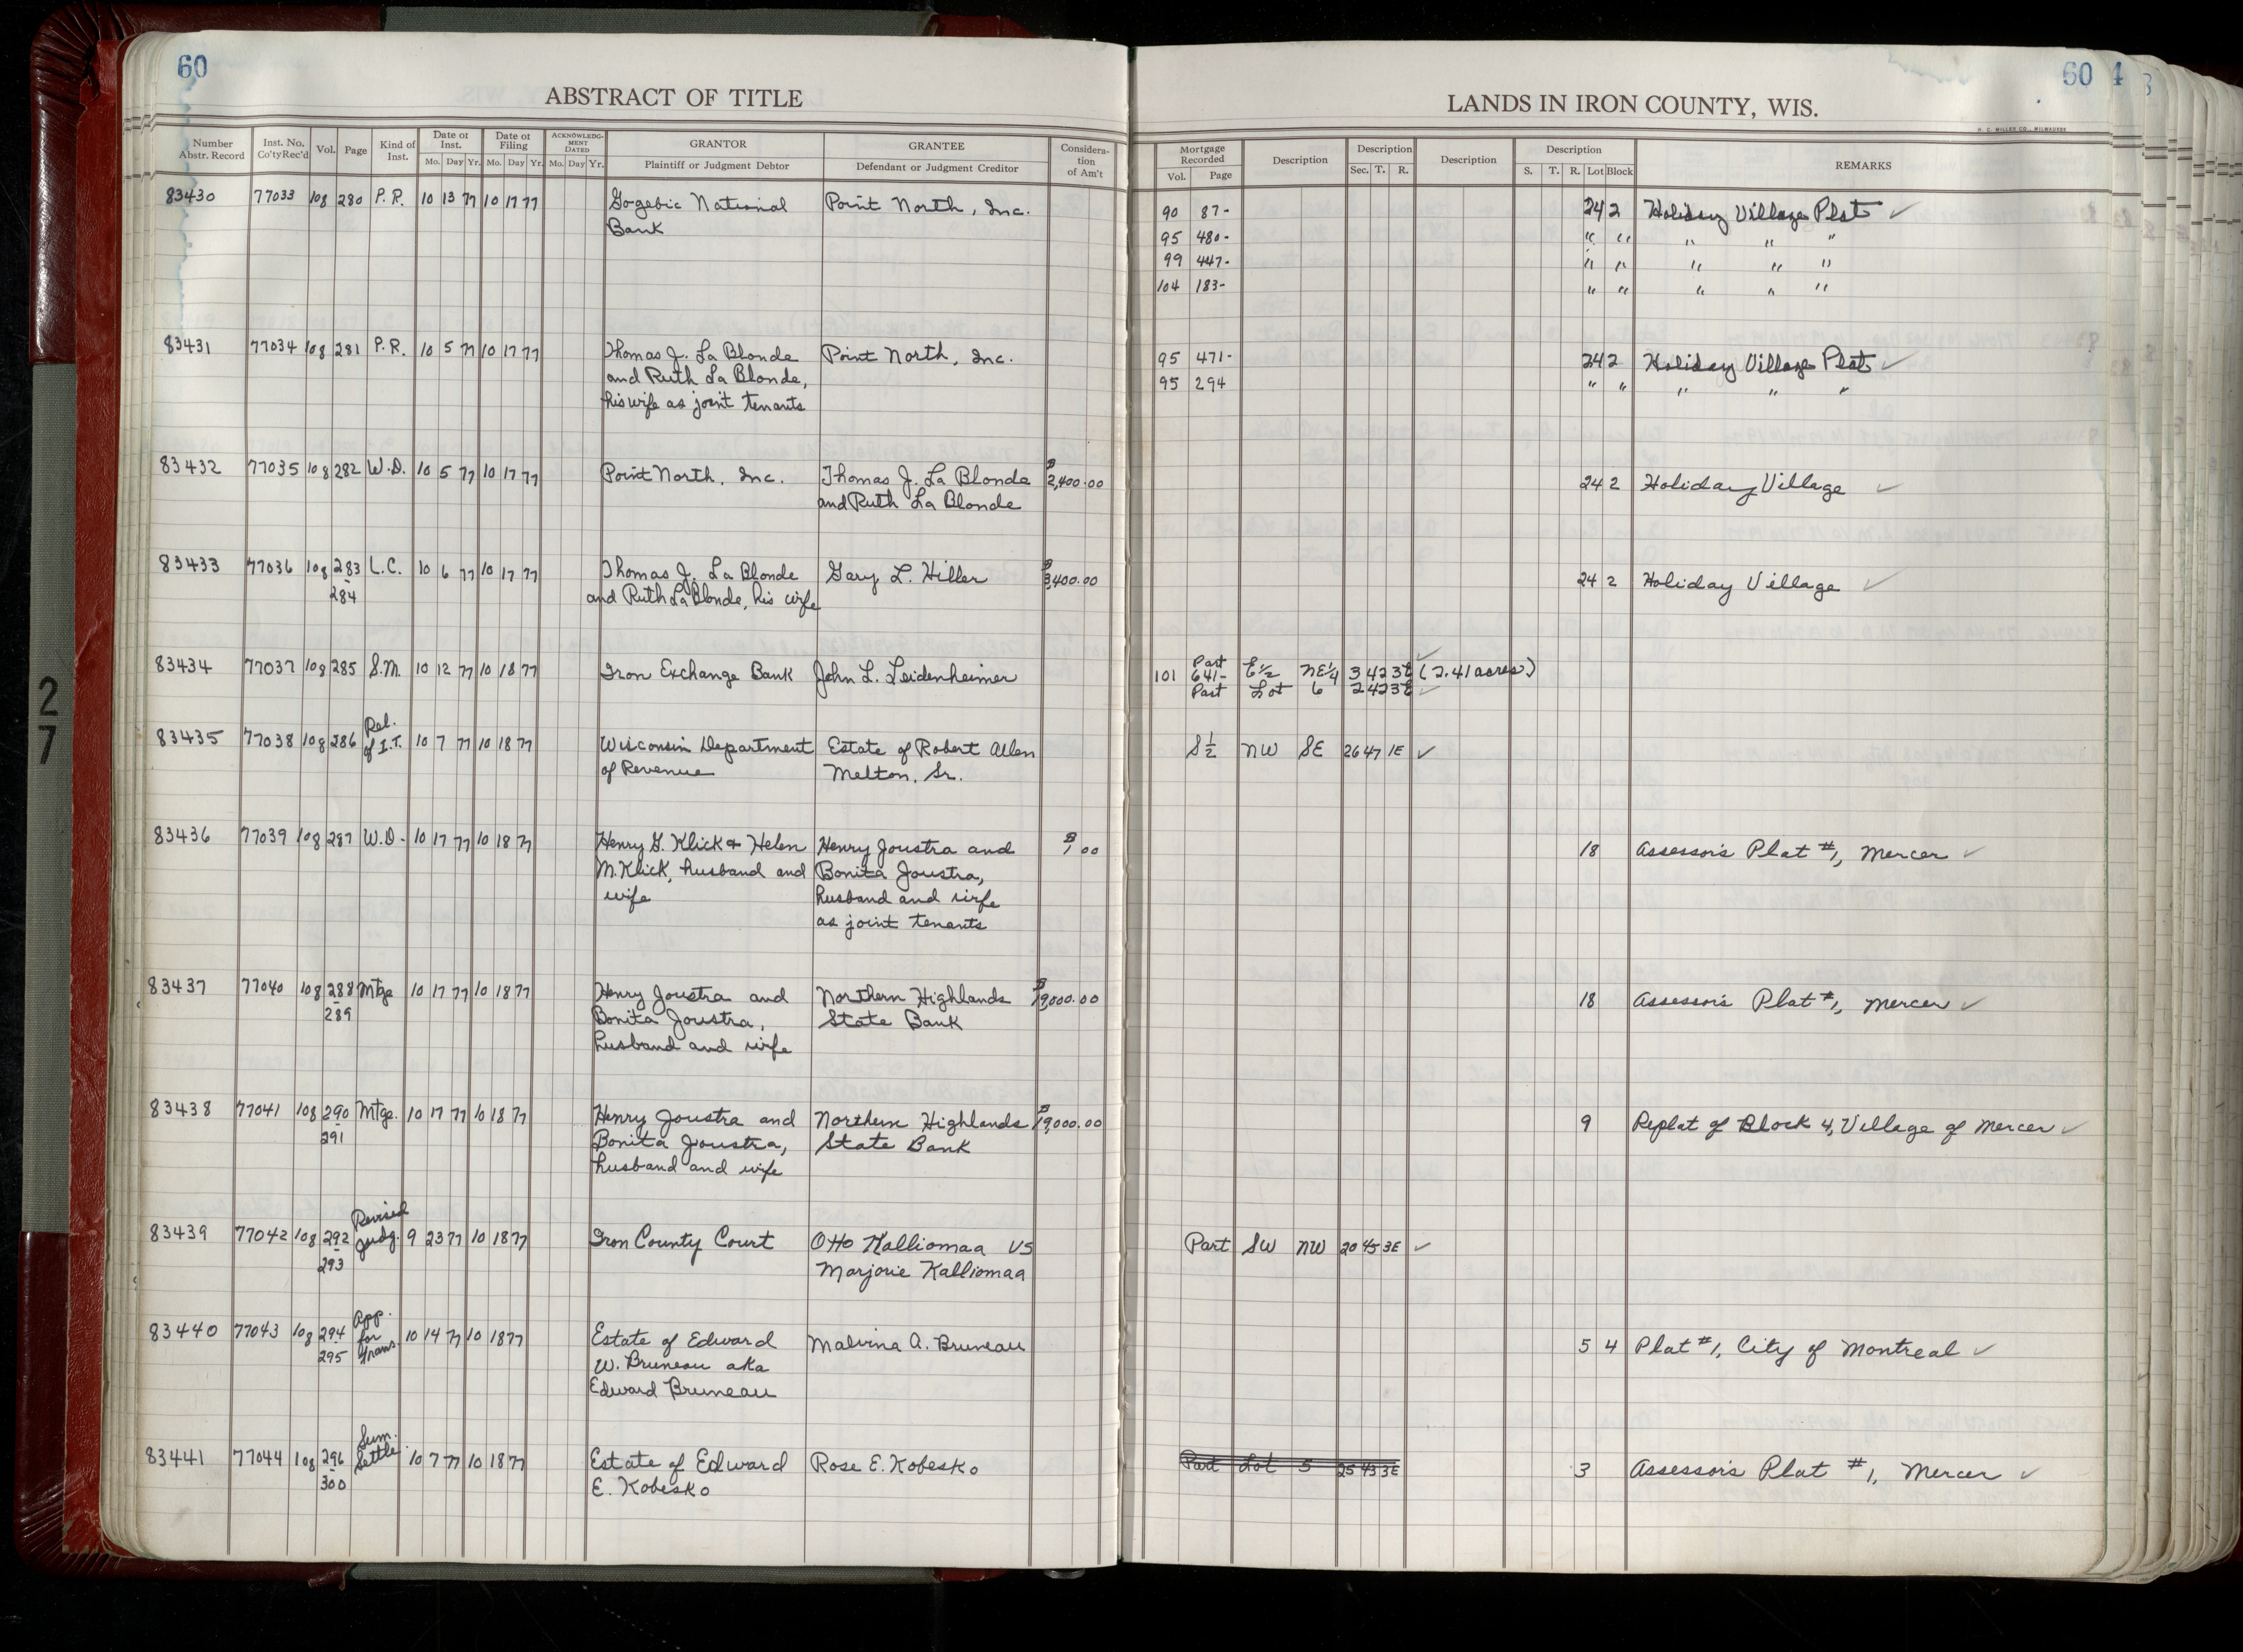 60
ABSTRACT OF TITLE
Number Abstr. Record Inst. No. Co'ty Rec'd Vol. Page Kind of Inst. Date of Inst. Mo. Day Yr. Date of Filing Mo. Day Yr. ACKNOWLEDGMENT DATED Mo. Day Yr. GRANTOR Plaintiff or Judgment Debtor GRANTEE Defendant or Judgment Creditor Consideration of Am't
83430 77033 108 280 P.R. 10 13 77 10 17 77 Gogebic National Point North, Inc.
Bank
83431 77034 108 281 P.R. 10 5 77 10 17 77 Thomas J. La Blonde Point North, Inc.
and Ruth La Blonde,
his wife as joint tenants
83432 77035 108 282 W.D. 10 5 77 10 17 77 Point North, Inc. Thomas J. La Blonde $2,400.00
and Ruth La Blonde
83433 77036 108 283 L.C. 10 6 77 10 17 77 Thomas J. La Blonde Gary L. Hiller $3,400.00
- 284 and Ruth La Blonde, his wife
83434 77037 108 285 S.M. 10 12 77 10 18 77 Iron Exchange Bank John L. Leidenheimer
83435 77038 108 286 Rel. of I.T. 10 7 77 10 18 77 Wisconsin Department Estate of Robert Allen
of Revenue Melton, Sr.
83436 77039 108 287 W.D. 10 17 77 10 18 77 Henry G. Klick & Helen Henry Joustra and $1.00
M. Klick, husband and Bonita Joustra,
wife husband and wife
as joint tenants
83437 77040 108 288 Mtge 10 17 77 10 18 77 Henry Joustra and Northern Highlands $19,000.00
- 289 Bonita Joustra, State Bank
husband and wife
83438 77041 108 290 Mtge. 10 17 77 10 18 77 Henry Joustra and Northern Highlands $19,000.00
- 291 Bonita Joustra, State Bank
husband and wife
83439 77042 108 292 Revised Judg. 9 23 77 10 18 77 Iron County Court Otto Kalliomaa VS
- 293 Marjorie Kalliomaa
83440 77043 108 294 App. for Trans. 10 14 77 10 18 77 Estate of Edward Malvina A. Bruneau
- 295 W. Bruneau aka
Edward Bruneau
83441 77044 108 296 Sum. Settle. 10 7 77 10 18 77 Estate of Edward Rose E. Kobesko
- 300 E. Kobesko
27
60 4
LANDS IN IRON COUNTY, WIS.
H. C. MILLER CO., MILWAUKEE
Mortgage Recorded Vol. Page Description Description Sec. T. R. Description Description S. T. R. Lot Block REMARKS
90 87- 24 2 Holiday Village Plat ✓
95 480- " " " " "
99 447- " " " " "
104 183- " " " " "
95 471- 24 2 Holiday Village Plat ✓
95 294 " " " " "
24 2 Holiday Village ✓
24 2 Holiday Village ✓
Part ✓
101 641- E½ NE¼ 3 42 3E (2.41 acres)
Part Lot 6 2 42 3E ✓
S½ NW SE 26 47 1E ✓
18 Assessor's Plat #1, Mercer ✓
18 Assessor's Plat #1, Mercer ✓
9 Replat of Block 4, Village of Mercer ✓
Part SW NW 20 45 3E ✓
5 4 Plat #1, City of Montreal ✓
Part Lot 5 25 43 3E 3 Assessor's Plat #1, Mercer ✓